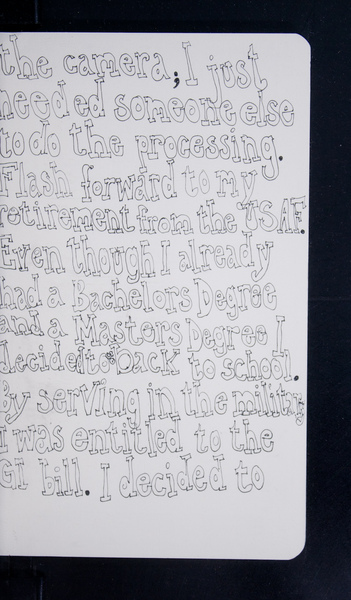 the camera; I just
needed someone else
to do the processing.
Flash forward to my
retirement from the USAF.
Even though I already
had a Bachelors Degree
and a Masters Degree I
decided to back to school.
By serving in the military
I was entitled to the
GI bill. I decided to